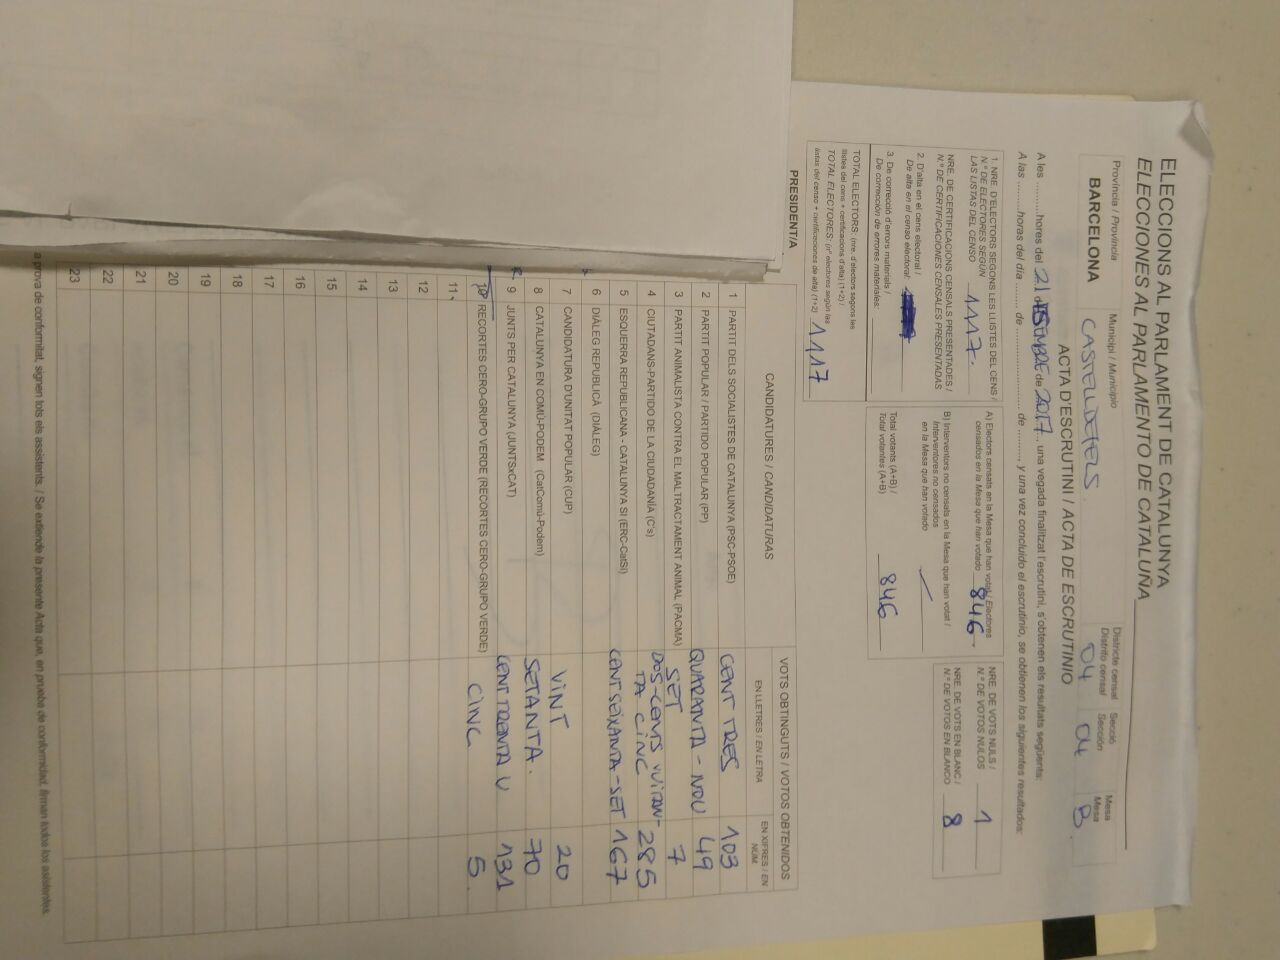 ELECCIONS AL PARLAMENT DE CATALUNYA
ELECCIONES AL PARLAMENTO DE CATALUÑA
Província / Provincia
BARCELONA
Municipi / Municipio
CASTELLDEFELS
Districte censal
Distrito censal
04
Secció
Sección
04
Mesa
Mesa
B.
ACTA D'ESCRUTINI / ACTA DE ESCRUTINIO
A les ......... hores del 21 de 2017, una vegada finalitzat l'escrutini, s'obtenen els resultats següents:
A las ......... horas del día ........ de ........................ de ........, y una vez concluido el escrutinio, se obtienen los siguientes resultados:
1. NRE. D'ELECTORS SEGONS LES LLISTES DEL CENS /
N.º DE ELECTORES SEGÚN
LAS LISTAS DEL CENSO 1117.
NRE. DE CERTIFICACIONS CENSALS PRESENTADES /
N.º DE CERTIFICACIONES CENSALES PRESENTADAS
2. D'alta en el cens electoral /
De alta en el censo electoral:
3. De correcció d'errors materials /
De corrección de errores materiales:
TOTAL ELECTORS: (nre. d'electors segons les
llistes del cens + certificacions d'alta) (1+2) /
TOTAL ELECTORES: (nº electores según las
listas del censo + certificaciones de alta) (1+2) 1117
A) Electors censats en la Mesa que han votat / Electores
censados en la Mesa que han votado 846
B) Interventors no censats en la Mesa que han votat /
Interventores no censados
en la Mesa que han votado
Total votants (A+B) /
Total votantes (A+B) 846
NRE. DE VOTS NULS /
N.º DE VOTOS NULOS 1
NRE. DE VOTS EN BLANC /
N.º DE VOTOS EN BLANCO 8
PRESIDENT/A
CANDIDATURES / CANDIDATURAS
VOTS OBTINGUTS / VOTOS OBTENIDOS
EN LLETRES / EN LETRA
EN XIFRES / EN NÚM.
1 PARTIT DELS SOCIALISTES DE CATALUNYA (PSC-PSOE) CENT TRES 103
2 PARTIT POPULAR / PARTIDO POPULAR (PP) QUARANTA-NOU 49
3 PARTIT ANIMALISTA CONTRA EL MALTRACTAMENT ANIMAL (PACMA) SET 7
4 CIUTADANS-PARTIDO DE LA CIUDADANÍA (C's) DOS-CENTS VUITAN-
TA CINC 285
5 ESQUERRA REPUBLICANA - CATALUNYA SÍ (ERC-CatSí) CENT SEIXANTA-SET 167
6 DIÀLEG REPUBLICÀ (DIÀLEG)
7 CANDIDATURA D'UNITAT POPULAR (CUP) VINT 20
8 CATALUNYA EN COMÚ-PODEM (CatComú-Podem) SETANTA. 70
9 JUNTS PER CATALUNYA (JUNTSxCAT) CENT TRENTA U 131
10 RECORTES CERO-GRUPO VERDE (RECORTES CERO-GRUPO VERDE) CINC 5.
11
12
13
14
15
16
17
18
19
20
21
22
23
a prova de conformitat, signen tots els assistents. / Se extiende la presente Acta que, en prueba de conformidad, firman todos los asistentes.